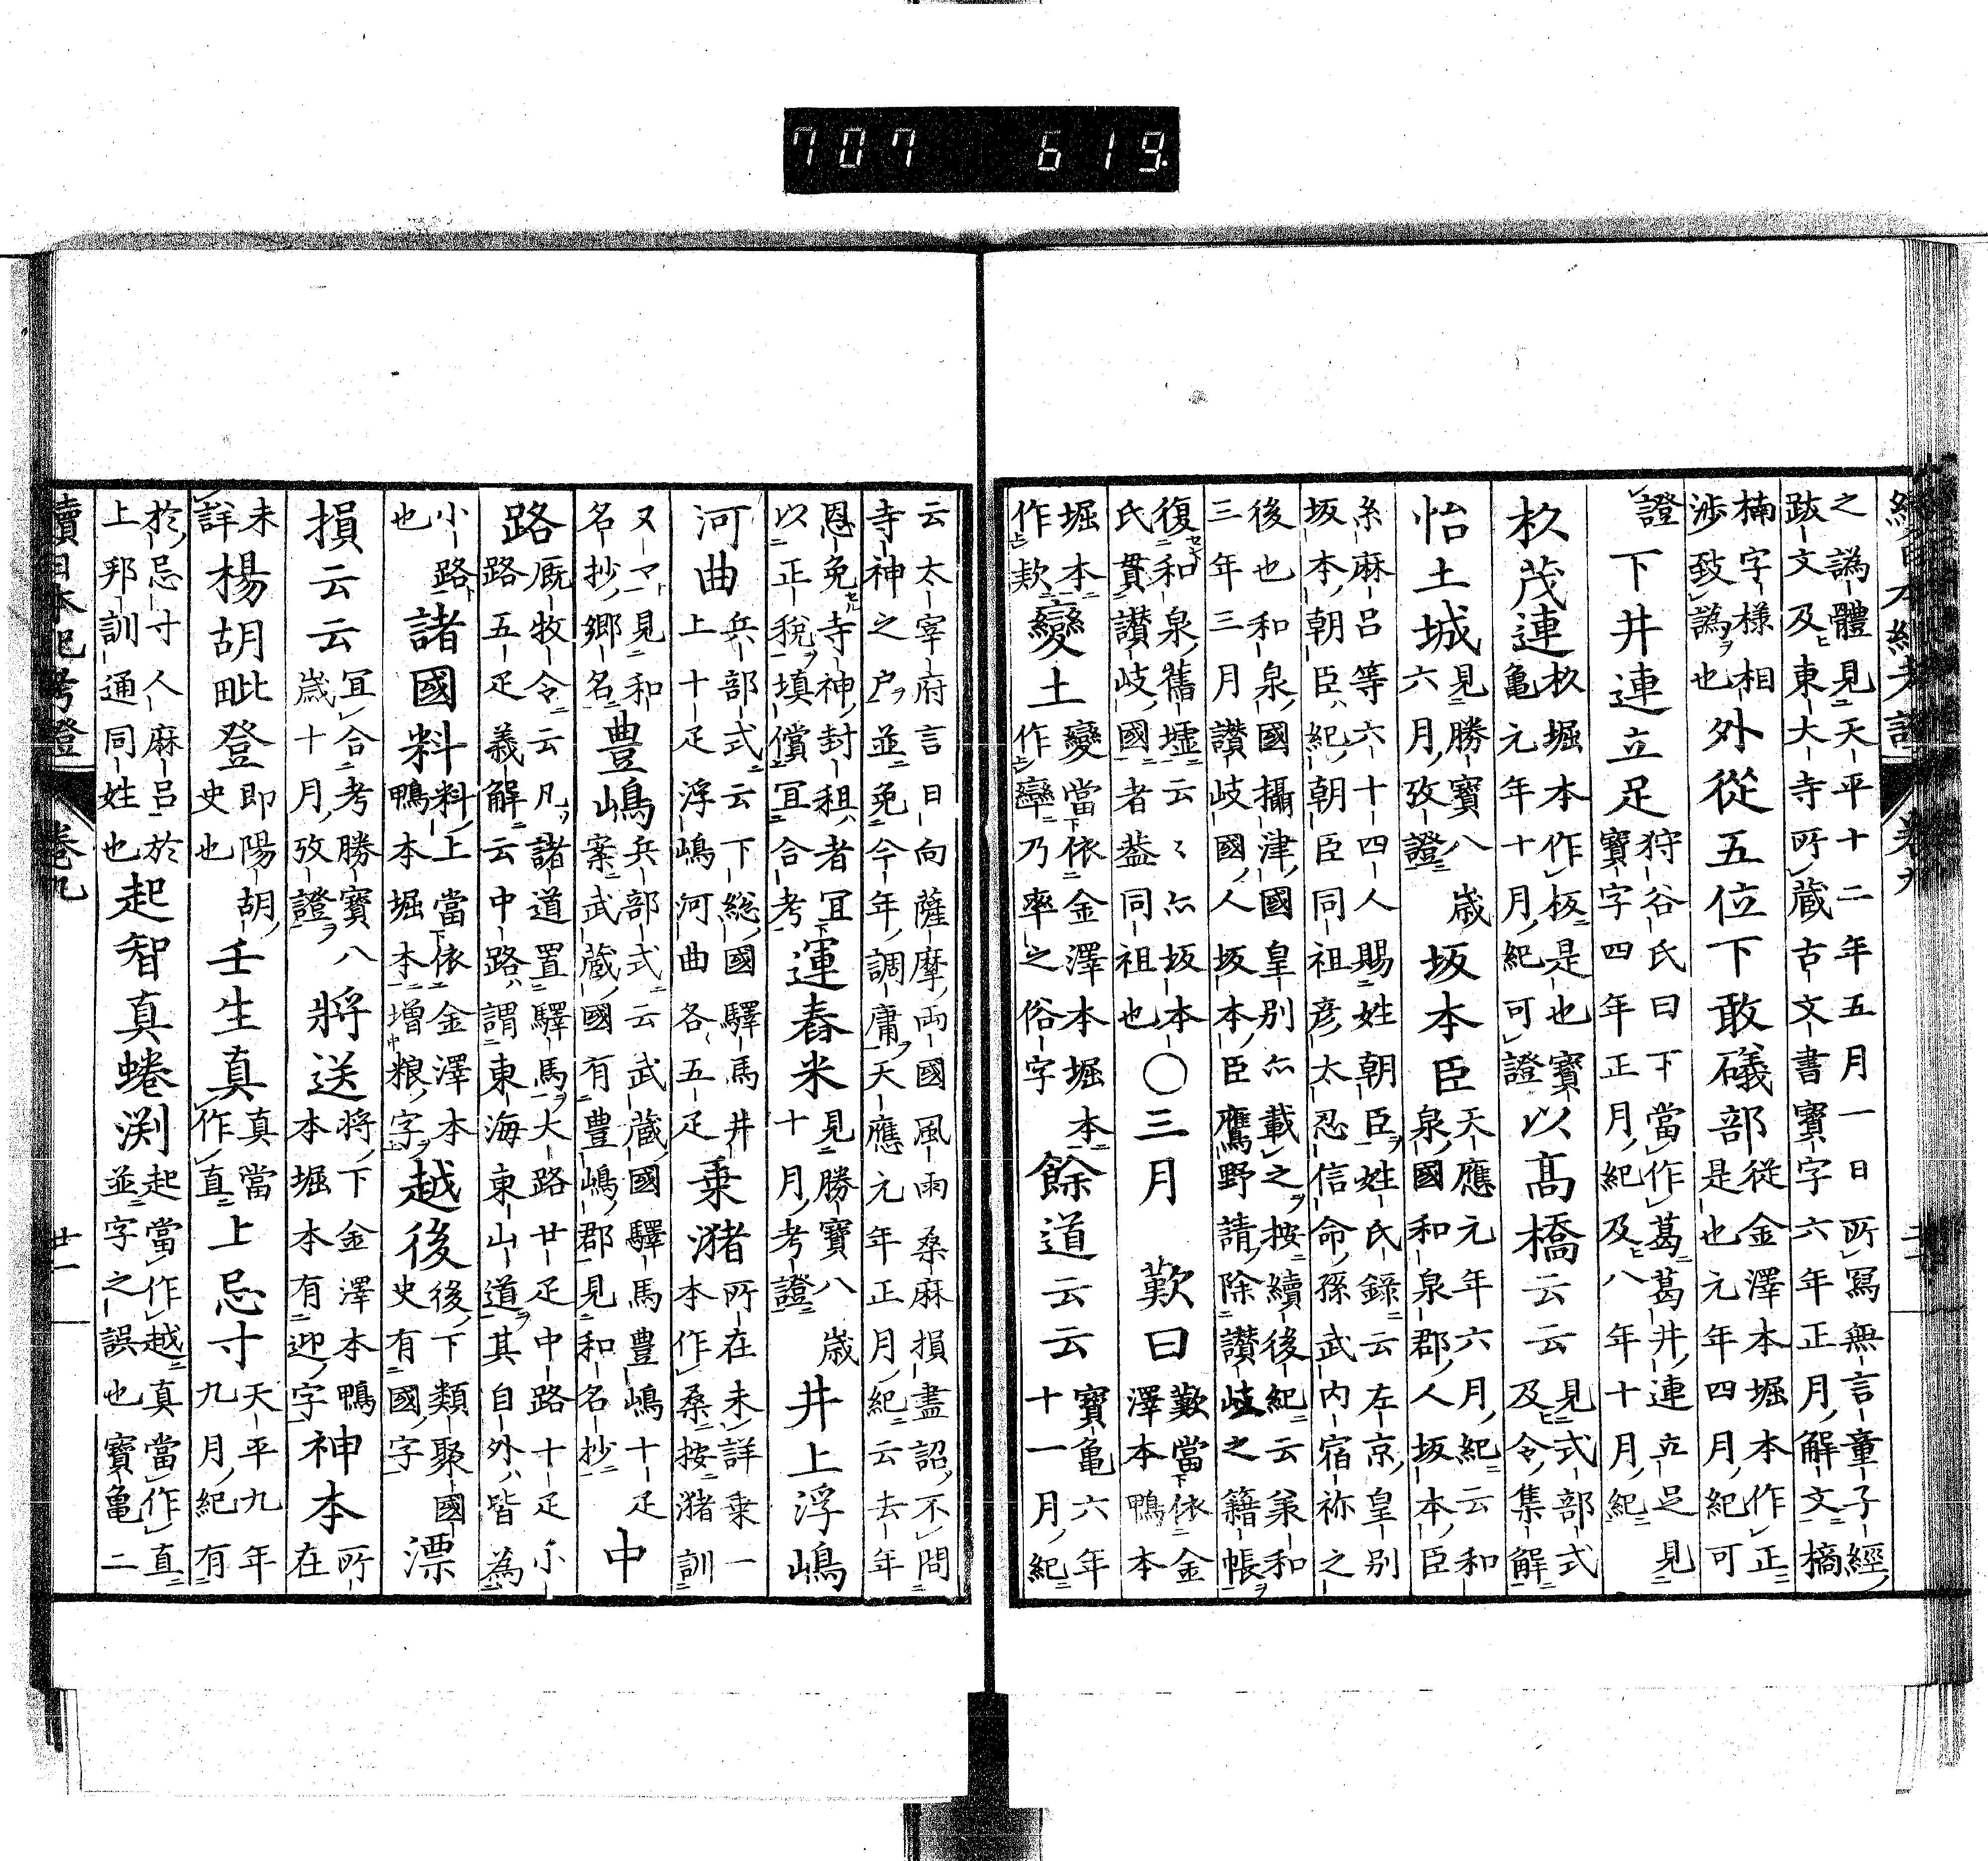 707 619
續日本紀考證 卷九
之譌體見天平十二年五月一日所寫無言童子經
跋文及東大寺所藏古文書寶字六年正月解文橘
楠字様相
渉致譌也
外從五位下敢礒部
從金澤本堀本作正
是也元年四月紀可
證
下井連立足
狩谷氏曰下當作葛葛井連立足見
寶字四年正月紀及八年十月紀
杦茂連
杦堀本作板是也寶
亀元年十月紀可證
以髙橋云云
見式部式
及令集解
怡土城
見勝寶八歳
六月攷證
坂本臣
天應元年六月紀云和
泉國和泉郡人坂本臣
糸麻呂等六十四人賜姓朝臣姓氏錄云左京皇別
坂本朝臣紀朝臣同祖彦太忍信命孫武内宿祢之
後也和泉國攝津國皇別亦載之按續後紀云承和
三年三月讃岐國人坂本臣鷹野請除讃岐之籍帳
復和泉舊墟云々亦坂本
氏貫讃岐國者葢同祖也
〇三月 歎曰
歎當依金
澤本鴨本
堀本
作欸
變土
變當依金澤本堀本
作䜌乃率之俗字
餘道云云
寶亀六年
十一月紀
云太宰府言日向薩摩兩國風雨桑麻損盡詔不問
寺神之户並免今年調庸天應元年正月紀云去年
恩免寺神封租者宜
以正税填償宜合考
運舂米
見勝寶八歳
十月考證
井上浮嶋
河曲
兵部式云下総國驛馬井
上十疋浮嶋河曲各五疋
乗潴
所在未詳乗一
本作桑按潴訓
又マ見和
名抄鄉名
豊嶋
兵部式云武藏國驛馬豊嶋十疋
案武藏國有豊嶋郡見和名抄
中
路
厩牧令云凡諸道置驛馬大路廿疋中路十疋小
路五疋義解云中路謂東海東山道其自外皆為
小路
也
諸國料
料上當依金澤本
鴨本堀本增粮字
越後
後下類聚國
史有國字
漂
損云云
宜合考勝寶八
歳十月攷證
將送
將下金澤本鴨
本堀本有迎字
神本
所
在
未
詳
楊胡毗登
即陽胡
史也
壬生真
真當
作直
上忌寸
天平九年
九月紀有
於忌寸人麻呂於
上邦訓通同姓也
起智真蜷渕
起當作越真當作直
並字之誤也寶亀二
續日本紀考證 卷九 廿一